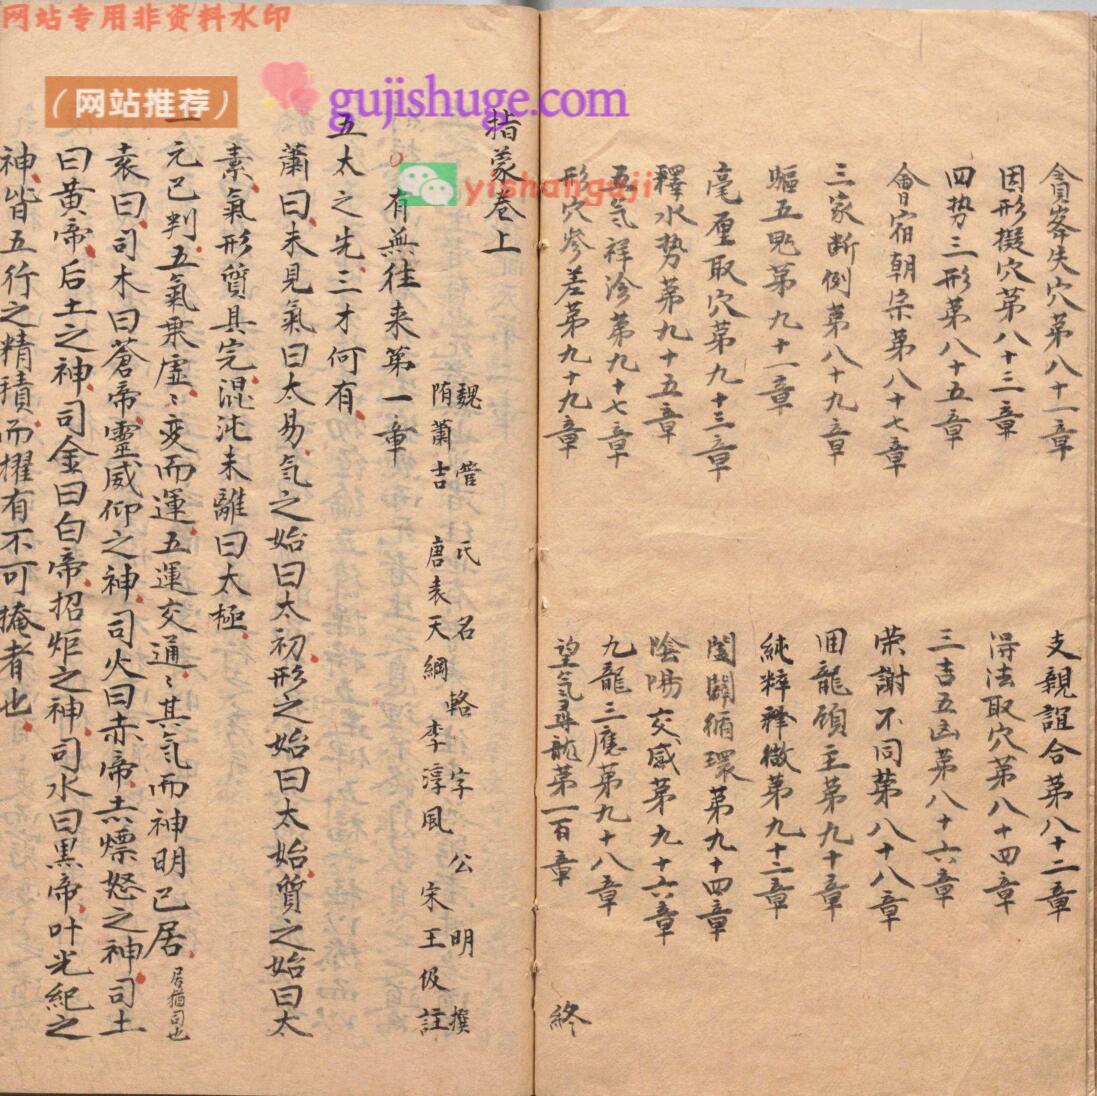 网站专用非资料水印
（网站推荐）
gujishuge.com
yishanguji
貪峯失穴第八十一章
支親誼合第八十二章
因形擬穴第八十三章
得法取穴第八十四章
四势三形第八十五章
三吉五凶第八十六章
會宿朝宗第八十七章
荣謝不同第八十八章
三家断例第八十九章
囬龍顧主第九十章
驅五鬼第九十一章
純粹釋微第九十二章
毫厘取穴第九十三章
闔闢循環第九十四章
釋水势第九十五章
陰陽交感第九十六章
五气祥沴第九十七章
九龍三應第九十八章
形穴參差第九十九章
望气尋龍第一百章
終
指蒙卷上
魏管氏名輅字公明撰
隋蕭吉 唐袁天綱 李淳風 宋王伋註
有無往来第一章
五太之先三才何有
蕭曰未見氣曰太易气之始曰太初形之始曰太始質之始曰太
素氣形質具完混沌未離曰太極
一元已判五氣乗虛〻变而運五運交通〻其气而神明已居居猶司也
袁曰司木曰蒼帝靈威仰之神司火曰赤帝赤熛怒之神司土
曰黃帝后土之神司金曰白帝招炬之神司水曰黒帝叶光紀之
神皆五行之精積而擢有不可掩者也